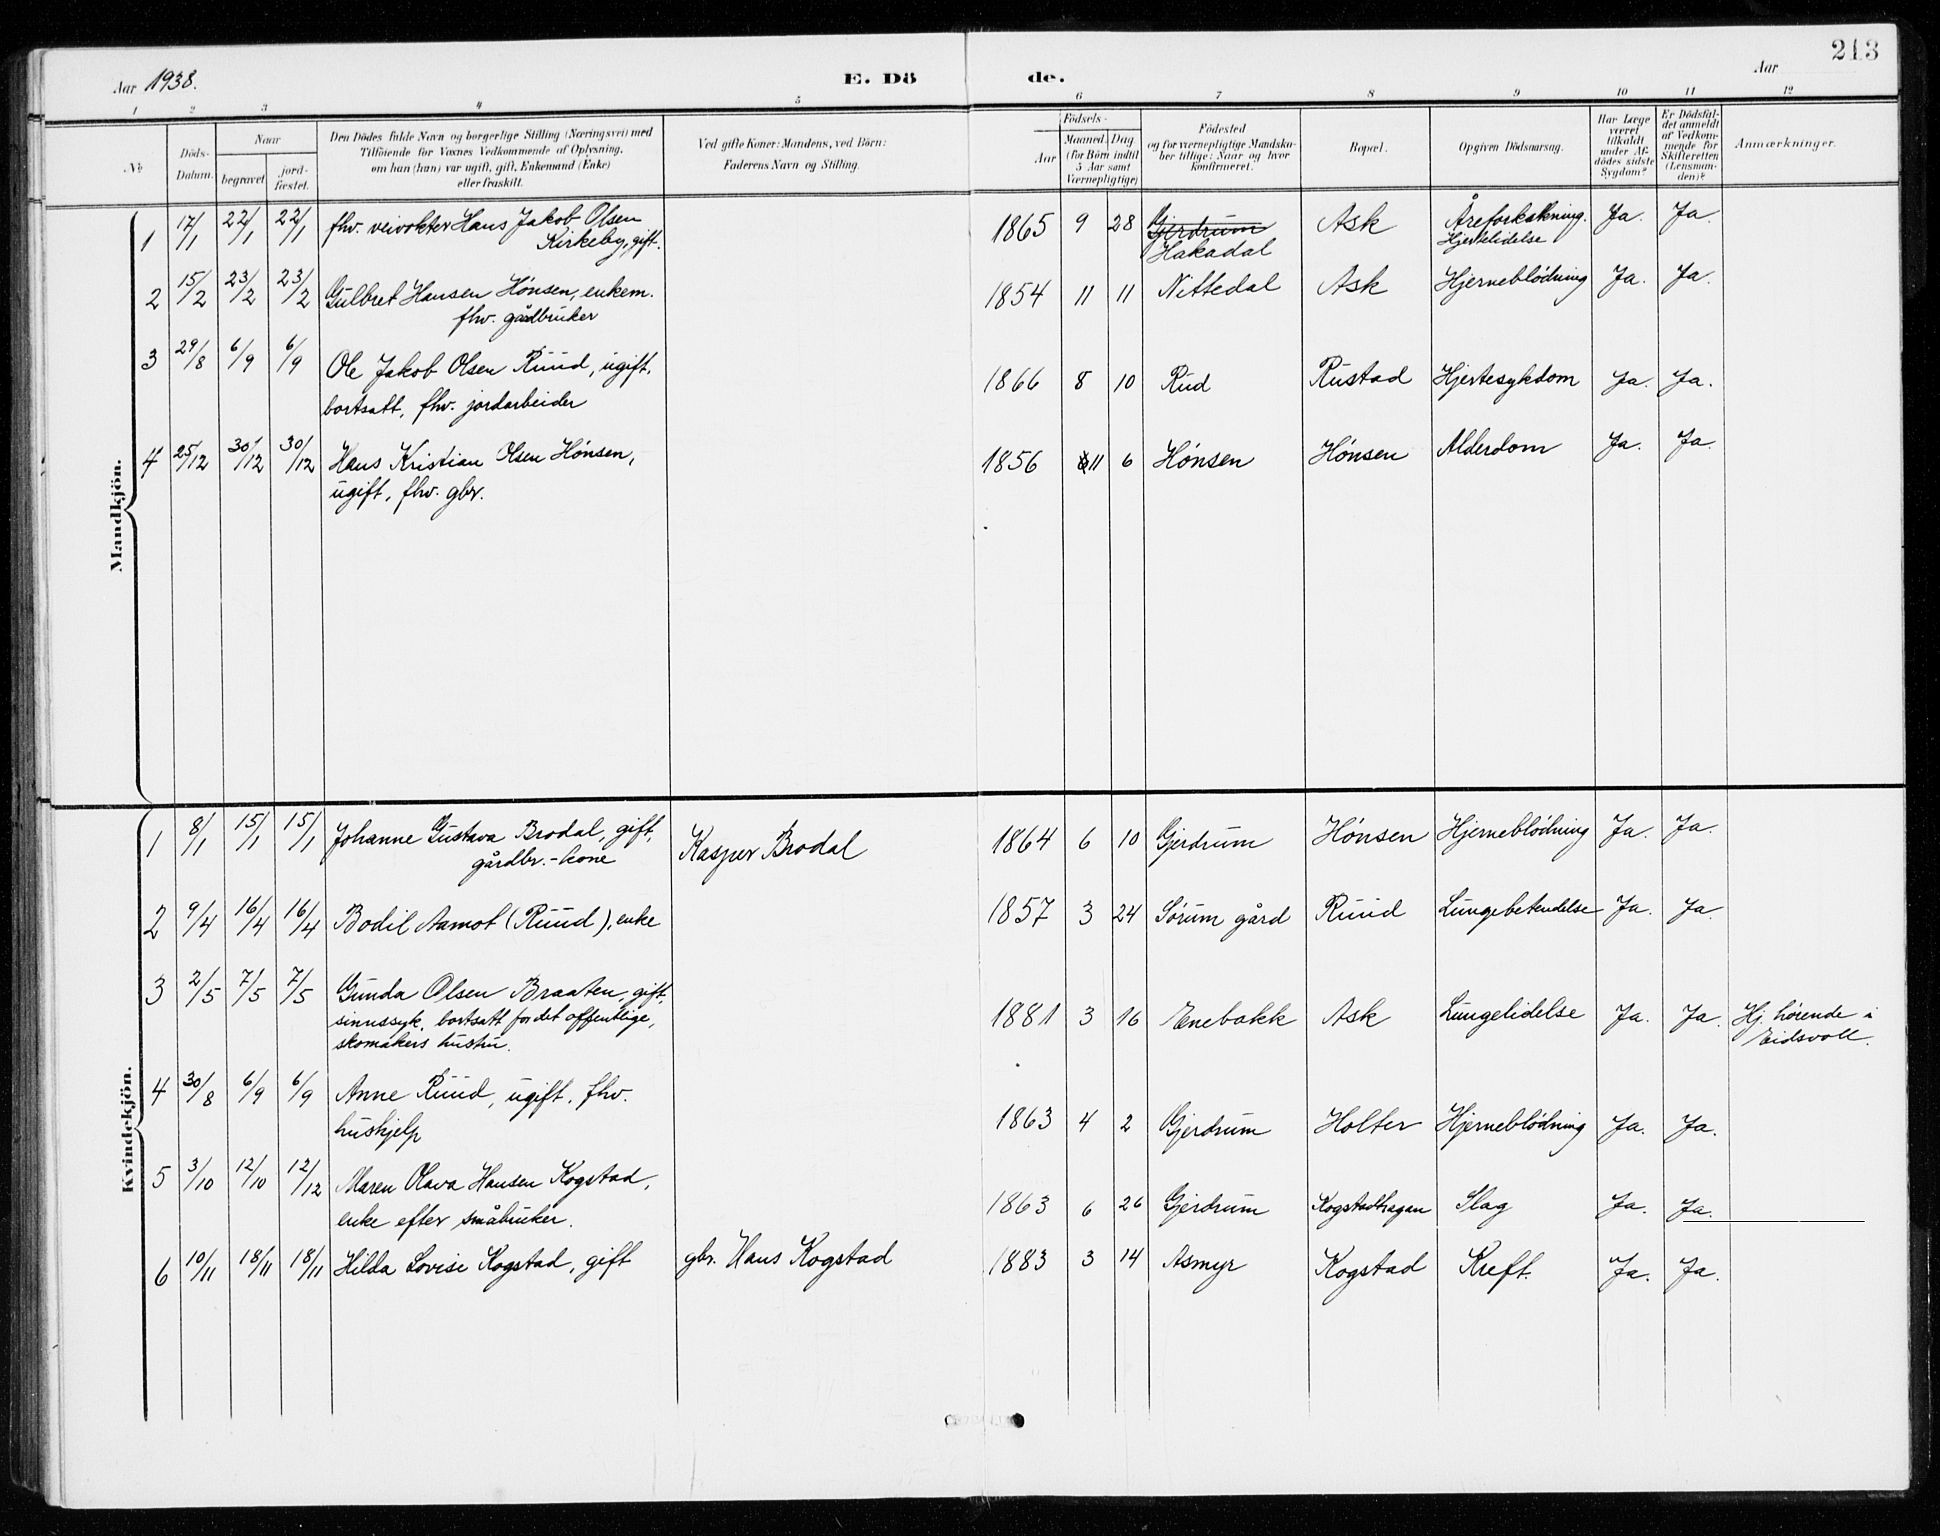 213
Aar 1938. E. Dö de. Aar
1 2 3 4 5 6 7 8 9 10 11 12
№
Döds-
Datum.
Naar
begravet
jord-
fæstet.
Den Dödes fulde Navn og borgerlige Stilling (Næringsvei) med
Tilföiende for Voxnes Vedkommende af Oplysning,
om han (hun) var ugift, gift, Enkemand (Enke)
eller fraskilt.
Ved gifte Koner: Mandens, ved Börn:
Faderens Navn og Stilling.
Födsels-
Aar
Maaned. Dag
(for Börn indtil
5 Aar samt
Værnepligtige)
Födested
og for værnepligtige Mandska-
ber tillige: Naar og hvor
konfirmeret.
Bopæl.
Opgiven Dödsaarsag.
Har Læge
været
tilkaldt
under Af-
dödes sidste
Sygdom?
Er Dödsfal-
det anmeldt
af Vedkom-
mende for
Skifteretten
(Lensman-
den)?
Anmærkninger.
Mandkjön.
1 17/1 22/1 22/1 fhv. veivokter Hans Jakob Olsen
Kirkeby, gift.
1865 9 28 Gjerdrum Ask Åreforkalkning. Ja. Ja.
Hakadal Hjertelidelse
2 15/2 23/2 23/2 Gulbret Hansen Hönsen, enkem. 1854 11 11 Nittedal Ask Hjerneblödning Ja. Ja.
fhv. gårdbruker
3 29/8 6/9 6/9 Ole Jakob Olsen Ruud, ugift, 1866 8 10 Rud Rustad Hjertesykdom Ja. Ja.
bortsatt, fhv. jordarbeider
4 25/12 30/12 30/12 Hans Kristian Olsen Hönsen, 1856 11 6 Hönsen Hönsen Alderdom Ja. Ja.
ugift, fhv. gbr.
Kvindekjön.
1 8/1 15/1 15/1 Johanne Gustava Brodal, gift, Kasper Brodal 1864 6 10 Gjerdrum Hönsen Hjerneblödning Ja. Ja.
gårdbr.-kone
2 9/4 16/4 16/4 Bodil Aamot (Ruud), enke 1857 3 24 Sörum gård Ruud Lungebetendelse Ja. Ja.
3 2/5 7/5 7/5 Gunda Olsen Braaten, gift, 1881 3 16 Enebakk Ask Lungelidelse Ja. Ja. Hj. hörende i
sinnssyk, bortsatt for det offentlige, Eidsvoll.
skomakers hustru.
4 30/8 6/9 6/9 Anne Ruud, ugift, fhv. 1863 4 2 Gjerdrum Holter Hjerneblödning Ja. Ja.
hushjelp
5 3/10 12/10 12/12 Maren Olava Hansen Kogstad, 1863 6 26 Gjerdrum Kogstadhagan Slag Ja. Ja.
enke efter småbruker.
6 10/11 18/11 18/11 Hilda Lovise Kogstad, gift gbr. Hans Kogstad 1883 3 14 Asmyr Kogstad Kreft. Ja. Ja.